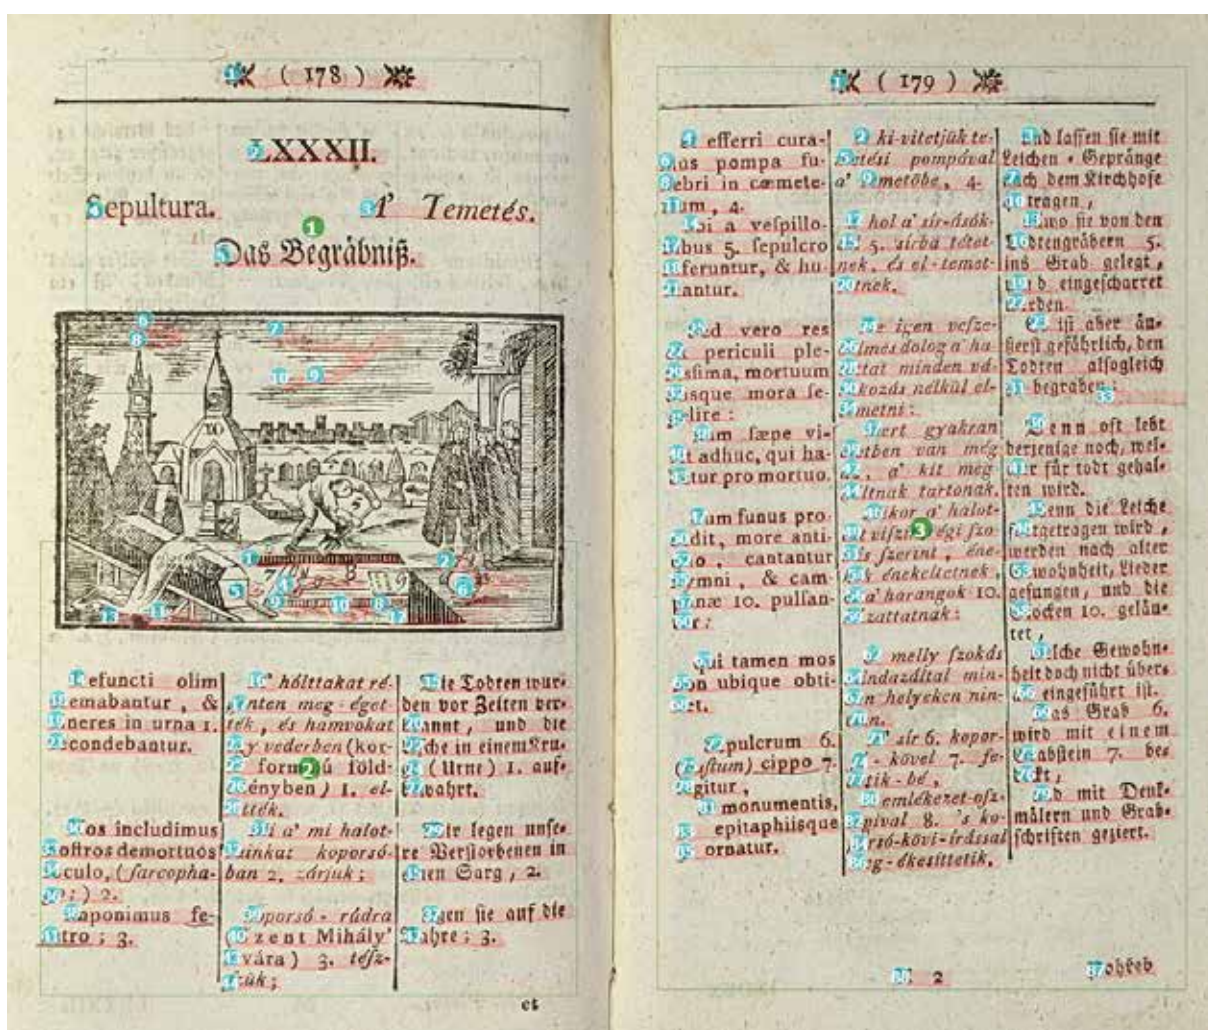 ( 178 )
LXXXII.
Sepultura.
A' Temetés.
Das Begräbniß.
Defuncti olim
cremabantur, &
cineres in urna 1.
recondebantur.
Nos includimus
nostros demortuos
loculo, (sarcopha-
go;) 2.
imponimus fe-
retro; 3.
A' hólttakat ré-
genten meg-éget-
ték, és hamvokat
egy vederben (kor-
só formájú föld-
edényben) 1. el-
tették.
Mi a' mi halot-
tainkat koporsó-
ban 2. zárjuk;
koporsó-rúdra
(Szent Mihály'
lovára) 3. tész-
szük;
Die Todten wur-
den vor Zeiten ver-
brannt, und die
Asche in einem Kru-
ge (Urne) 1. auf-
bewahrt.
Wir legen unse-
re Verstorbenen in
einen Sarg, 2.
legen sie auf die
Bahre; 3.
et
( 179 )
et efferri cura-
mus pompa fu-
nebri in cœmete-
rium, 4.
ubi a vespillo-
nibus 5. sepulcro
inferuntur, & hu-
mantur.
Sed vero res
est periculi ple-
nissima, mortuum
absque mora se-
pelire:
nam sæpe vi-
vit adhuc, qui ha-
betur pro mortuo.
Dum funus pro-
dit, more anti-
quo, cantantur
hymni, & cam-
panæ 10. pulsan-
tur;
qui tamen mos
non ubique obti-
net.
Sepulcrum 6.
(bustum) cippo 7.
tegitur,
monumentis,
8. epitaphiisque
9. ornatur.
's ki-vitetjük te-
metési pompával
a' temetőbe, 4.
a' hol a' sír-ásók-
tól 5. sírba tétet-
nek, és el-temet-
tetnek.
De igen vesze-
delmes dolog a' ha-
lottat minden vá-
rakozás nélkül el-
temetni:
mert gyakran
életben van még
az, a' kit meg
hóltnak tartonak.
Mikor a' halot-
tat viszik, régi szo-
kás szerint, éne-
kek énekeltetnek,
és a' harangok 10.
húzattatnak:
melly szokás
mindazáltal min-
den helyeken nin-
tsen.
A' sír 6. kopor-
só-kővel 7. fe-
detik-bé,
emlékezet-osz-
lopival 8. 's ko-
porsó-kövi-írással
meg-ékesíttetik.
Und lassen sie mit
Leichen-Gepränge
nach dem Kirchhofe
4. tragen,
wo sie von den
Todtengräbern 5.
ins Grab gelegt,
und eingescharret
werden.
Es ist aber äu-
ßerst gefährlich, den
Todten alsogleich
zu begraben;
Denn oft lebt
derjenige noch, wel-
cher für todt gehal-
ten wird.
Wenn die Leiche
fortgetragen wird,
werden nach alter
Gewohnheit, Lieder
gesungen, und die
Glocken 10. geläu-
tet,
welche Gewohn-
heit doch nicht über-
all eingeführt ist.
Das Grab 6.
wird mit einem
Grabstein 7. be-
deckt,
und mit Denk-
mälern und Grab-
schriften geziert.
2